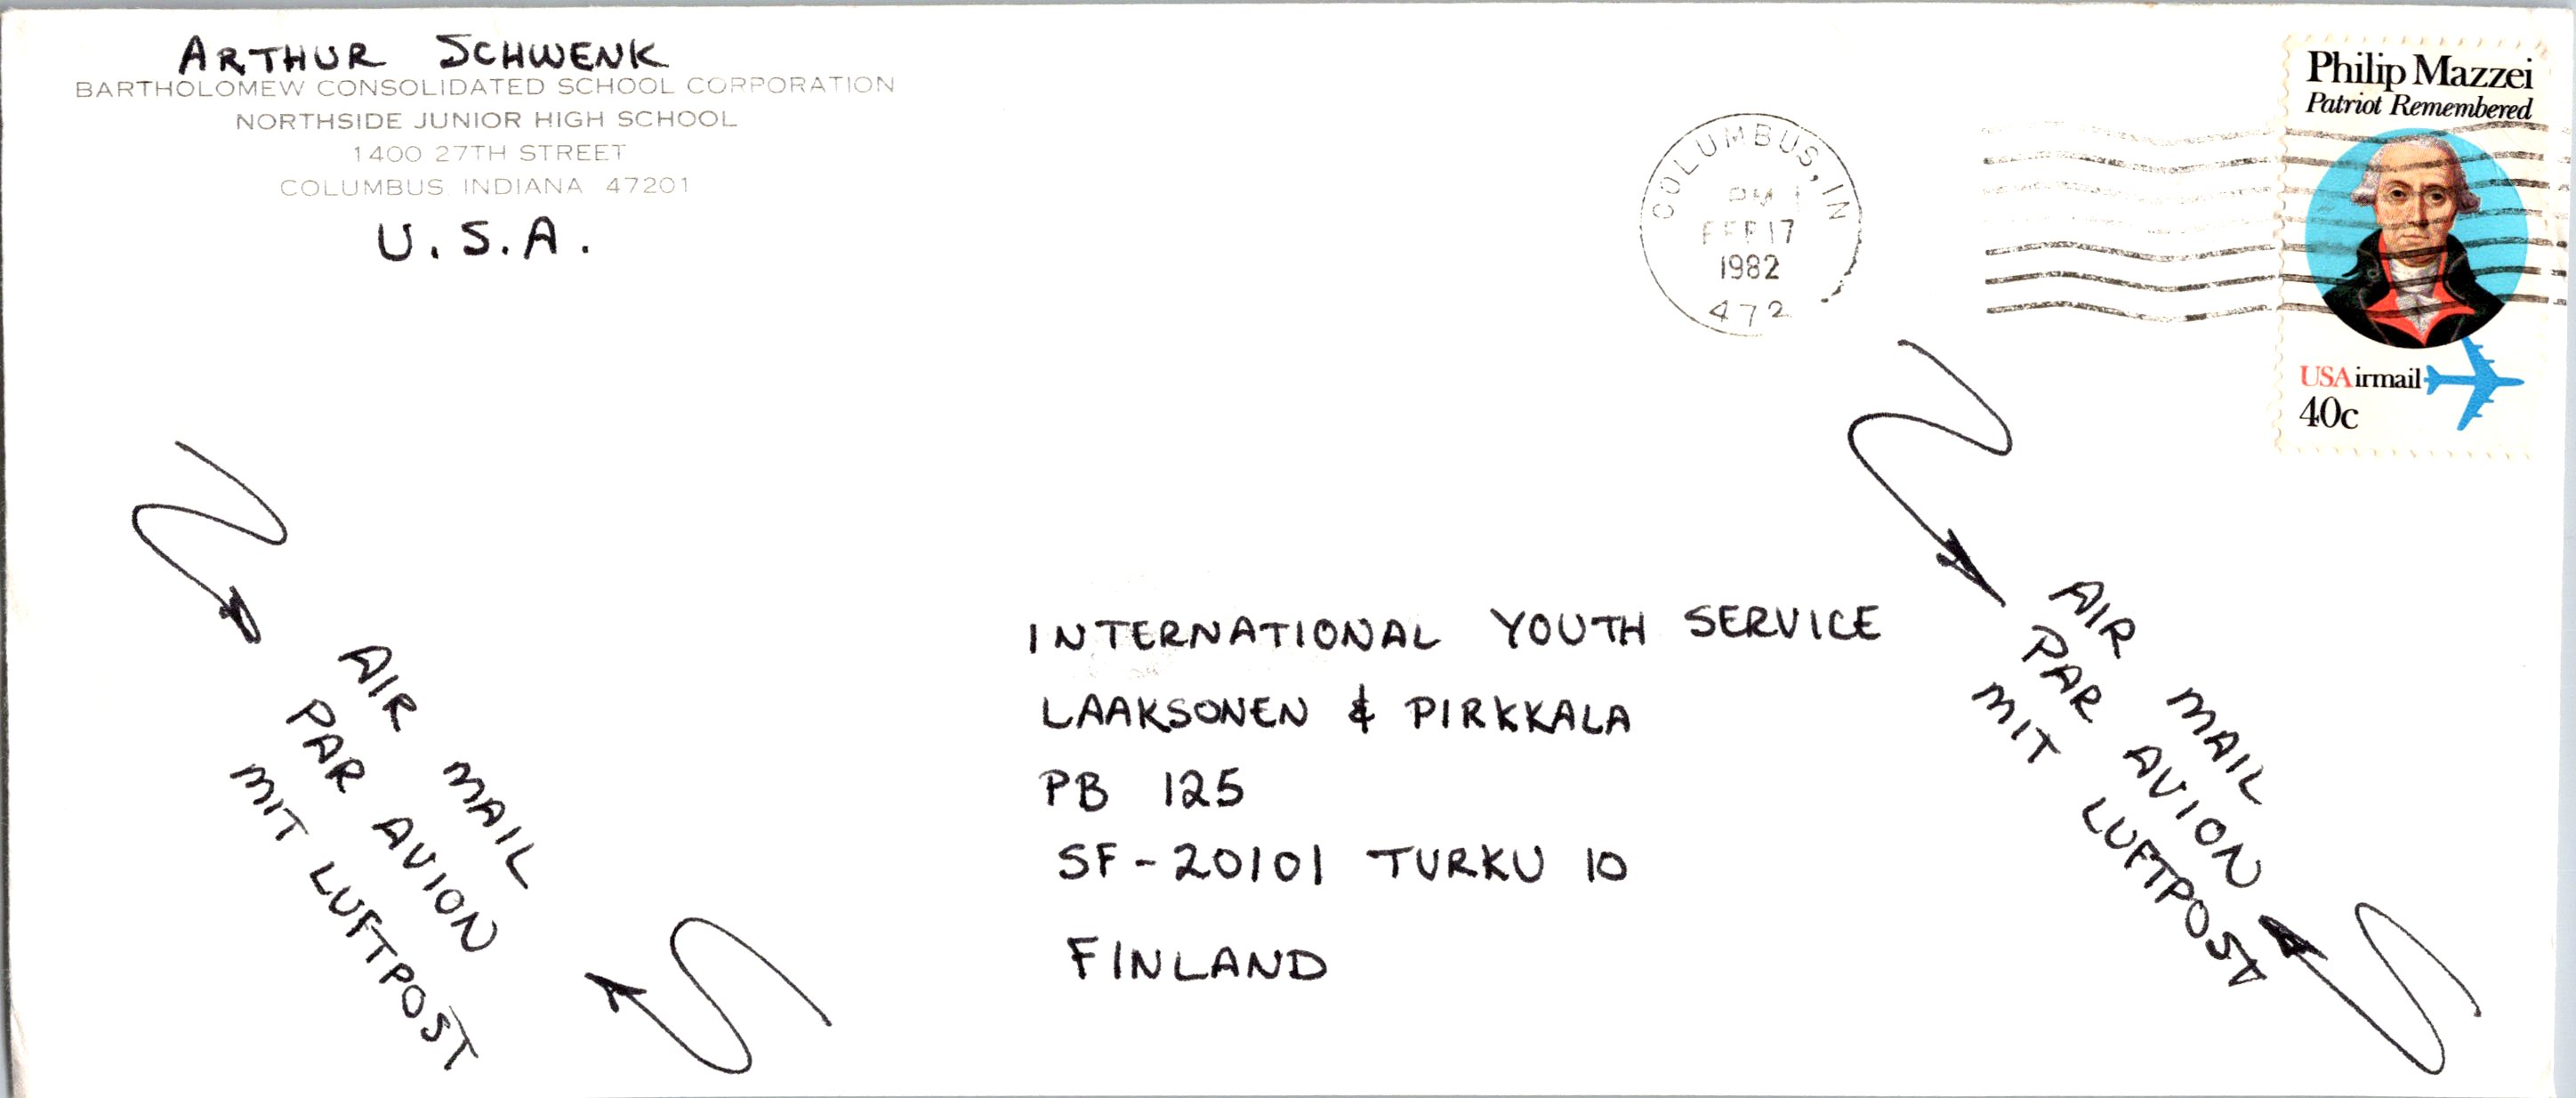 ARTHUR SCHWENK
BARTHOLOMEW CONSOLIDATED SCHOOL CORPORATION
NORTHSIDE JUNIOR HIGH SCHOOL
1400 27TH STREET
COLUMBUS, INDIANA 47201
U.S.A.
COLUMBUS, IN
PM
FEB 17
1982
472
Philip Mazzei
Patriot Remembered
USAirmail
40c
AIR MAIL
PAR AVION
MIT LUFTPOST
INTERNATIONAL YOUTH SERVICE
LAAKSONEN & PIRKKALA
PB 125
SF-20101 TURKU 10
FINLAND
AIR MAIL
PAR AVION
MIT LUFTPOST